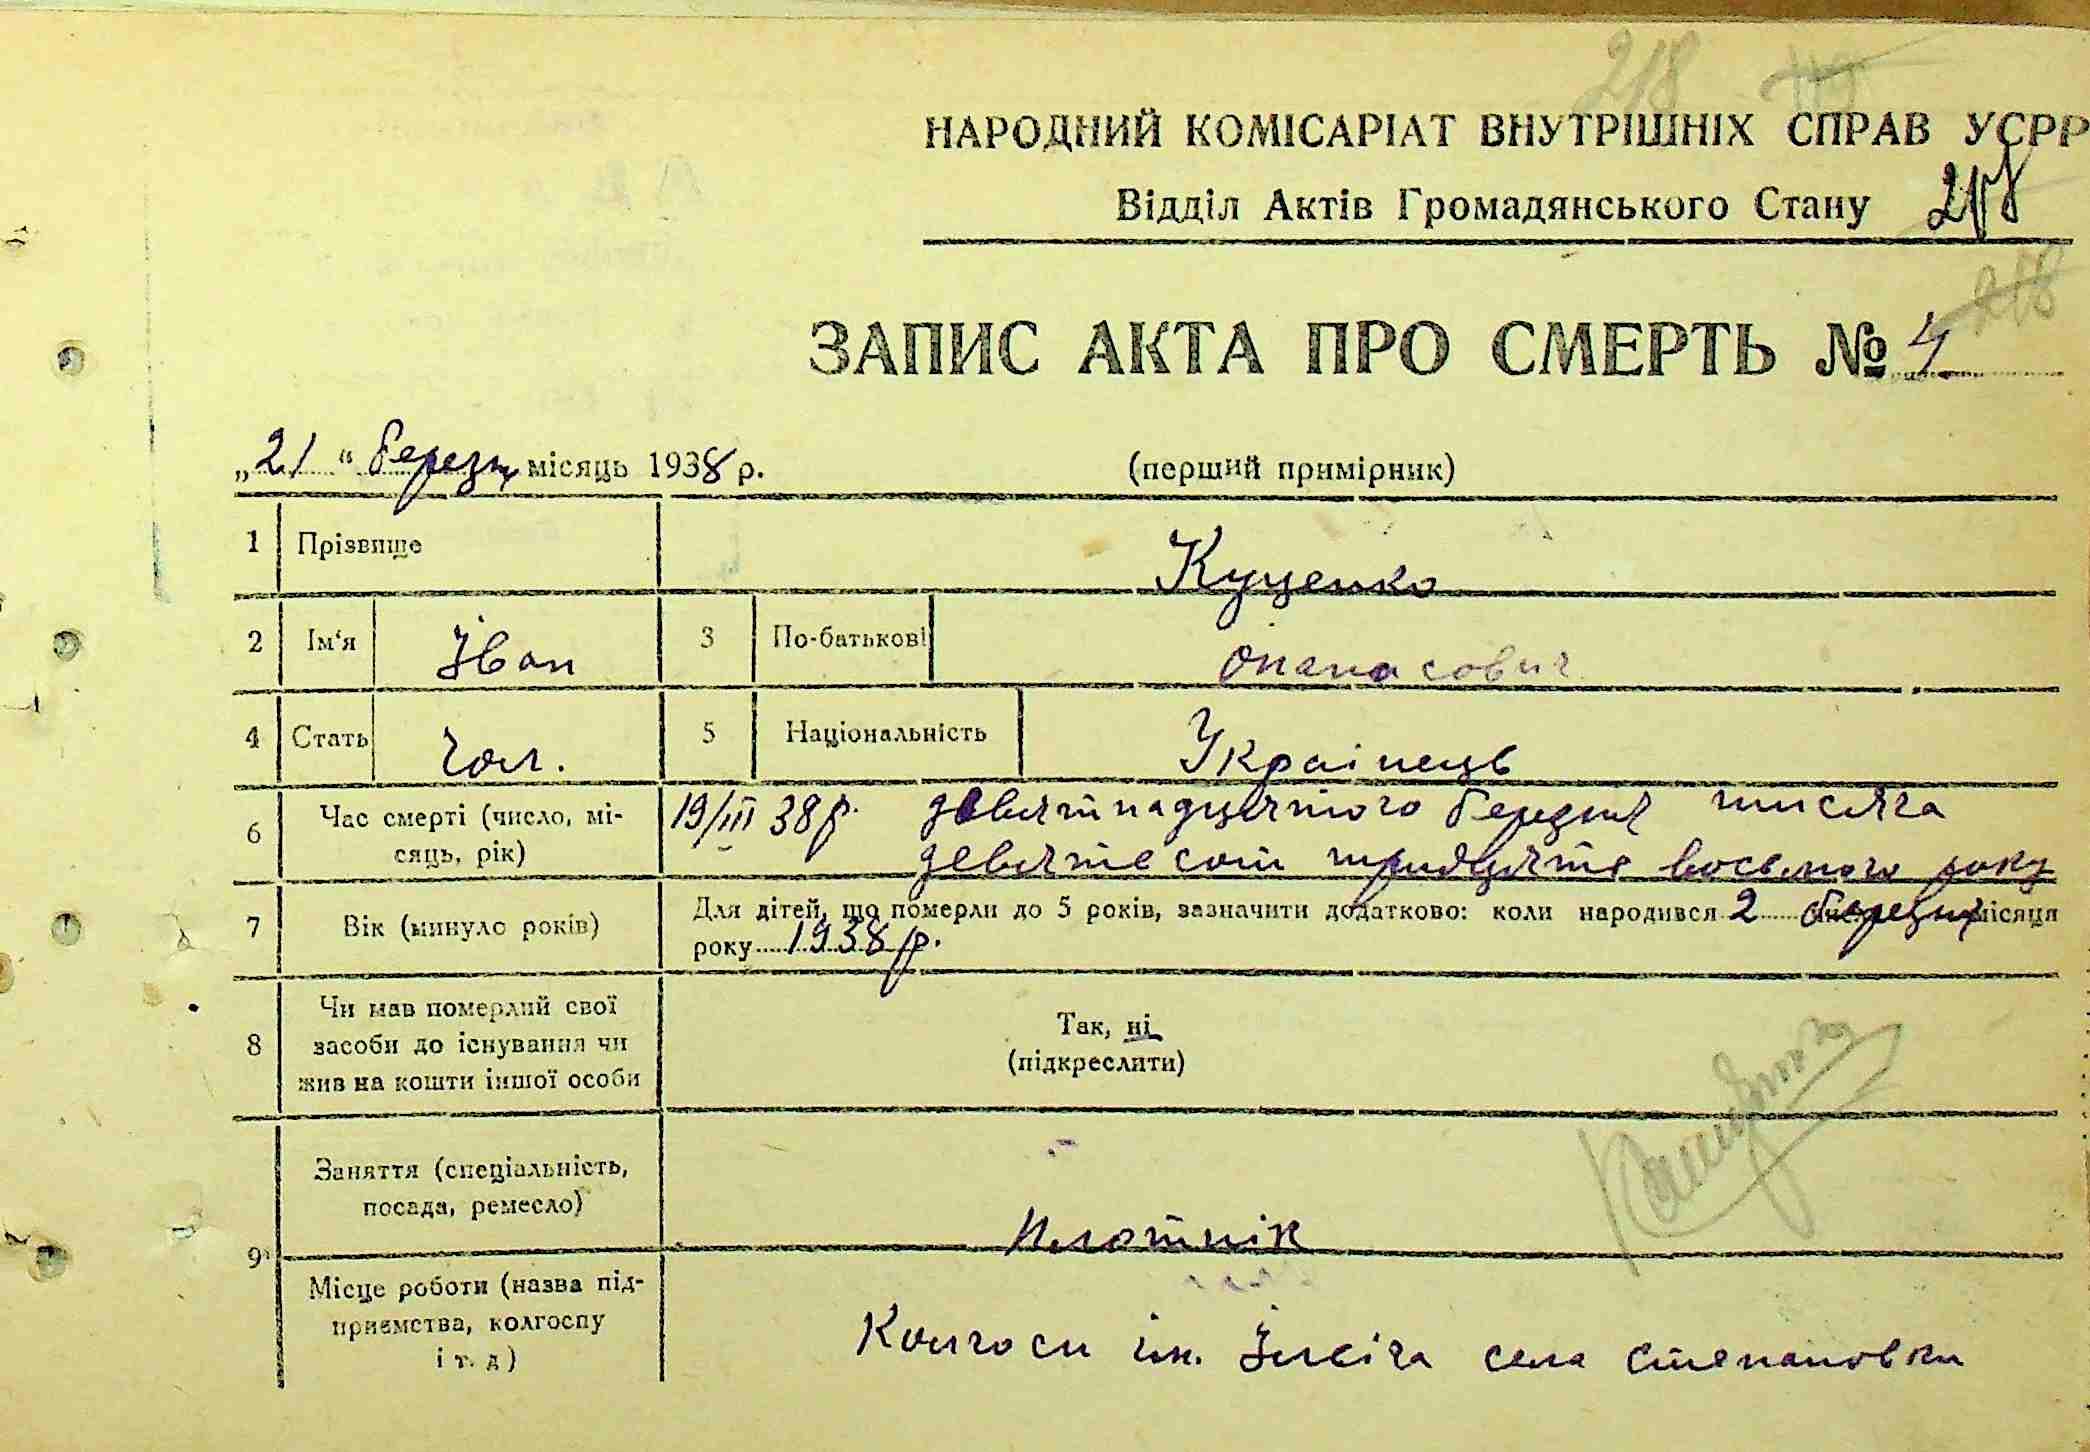 218 119
НАРОДНИЙ КОМІСАРІАТ ВНУТРІШНІХ СПРАВ УСРР
Відділ Актів Громадянського Стану 218
218
ЗАПИС АКТА ПРО СМЕРТЬ № 4
„21“ березня місяць 1938 р. (перший примірник)
1 Прізвище Куценко
2 Ім‘я Іван 3 По-батькові Опанасович
4 Стать Чол. 5 Національність Українець
6 Час смерті (число, мі-
сяць, рік)
19/III 38 р. девятнадцятого березня тисяча
девятсот тридцяте восьмого року
7 Вік (минуло років) Для дітей, що померли до 5 років, зазначити додатково: коли народився 2 березня місяця
року 1938 р.
8 Чи мав померлий свої
засоби до існування чи
жив на кошти іншої особи
Так, ні
(підкреслити)
9 Заняття (спеціальність,
посада, ремесло)
Плотнік
Місце роботи (назва під-
приємства, колгоспу
і т. д)
Колгосп ім. Ілліча села Степановки